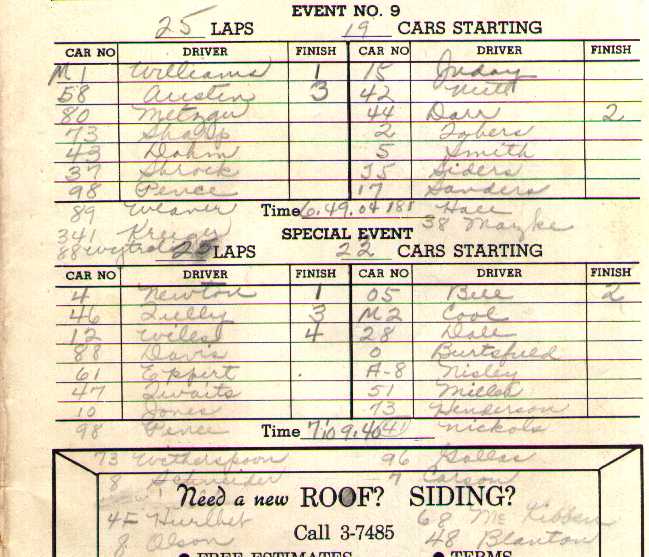 EVENT NO. 9
25 LAPS 19 CARS STARTING
CAR NO DRIVER FINISH CAR NO DRIVER FINISH
M1 Williams 1 15 Juday
58 Austin 3 42 Muth
80 Metzgu 44 Darr 2
73 Sharp 2
43 Dohm 5 Smith
37 Shrock 35 Siders
98 Pence 17 Sanders
89 Weaver Time 6.49.04 181 Hall
341 Kreiger 38 Mazke
SPECIAL EVENT
88
25 LAPS 22 CARS STARTING
CAR NO DRIVER FINISH CAR NO DRIVER FINISH
4 Newton 1 05 Bell 2
46 3 M2 Cool
12 Wiles 4 28 Dale
88 Davis 0 Burtsfield
61 Eppert A-8 Nisley
47 Thwaits 51 Miller
10 Jones 73 Henderson
98 Pence Time 7:09.40 41 Nickols
73 Witherspoon 96 Gallas
8 Schneider 7 Carson
Need a new ROOF? SIDING?
45 Hurlbet 68 McKibben
Call 3-7485
8 Olson 48 Blanton
• FREE ESTIMATES • TERMS